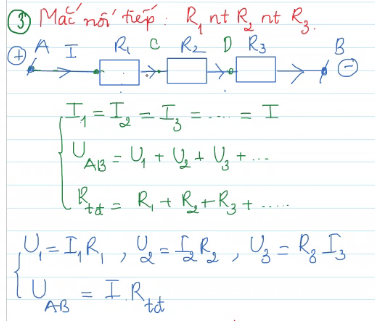 ③ Mắc nối tiếp : R₁ nt R₂ nt R₃.
A I R₁ C R₂ D R₃ B
+ −
I₁ = I₂ = I₃ = ..... = I
U_AB = U₁ + U₂ + U₃ + ...
R_tđ = R₁ + R₂ + R₃ + .....
U₁ = I₁R₁ , U₂ = I₂R₂ , U₃ = R₃ I₃
U_AB = I.R_tđ